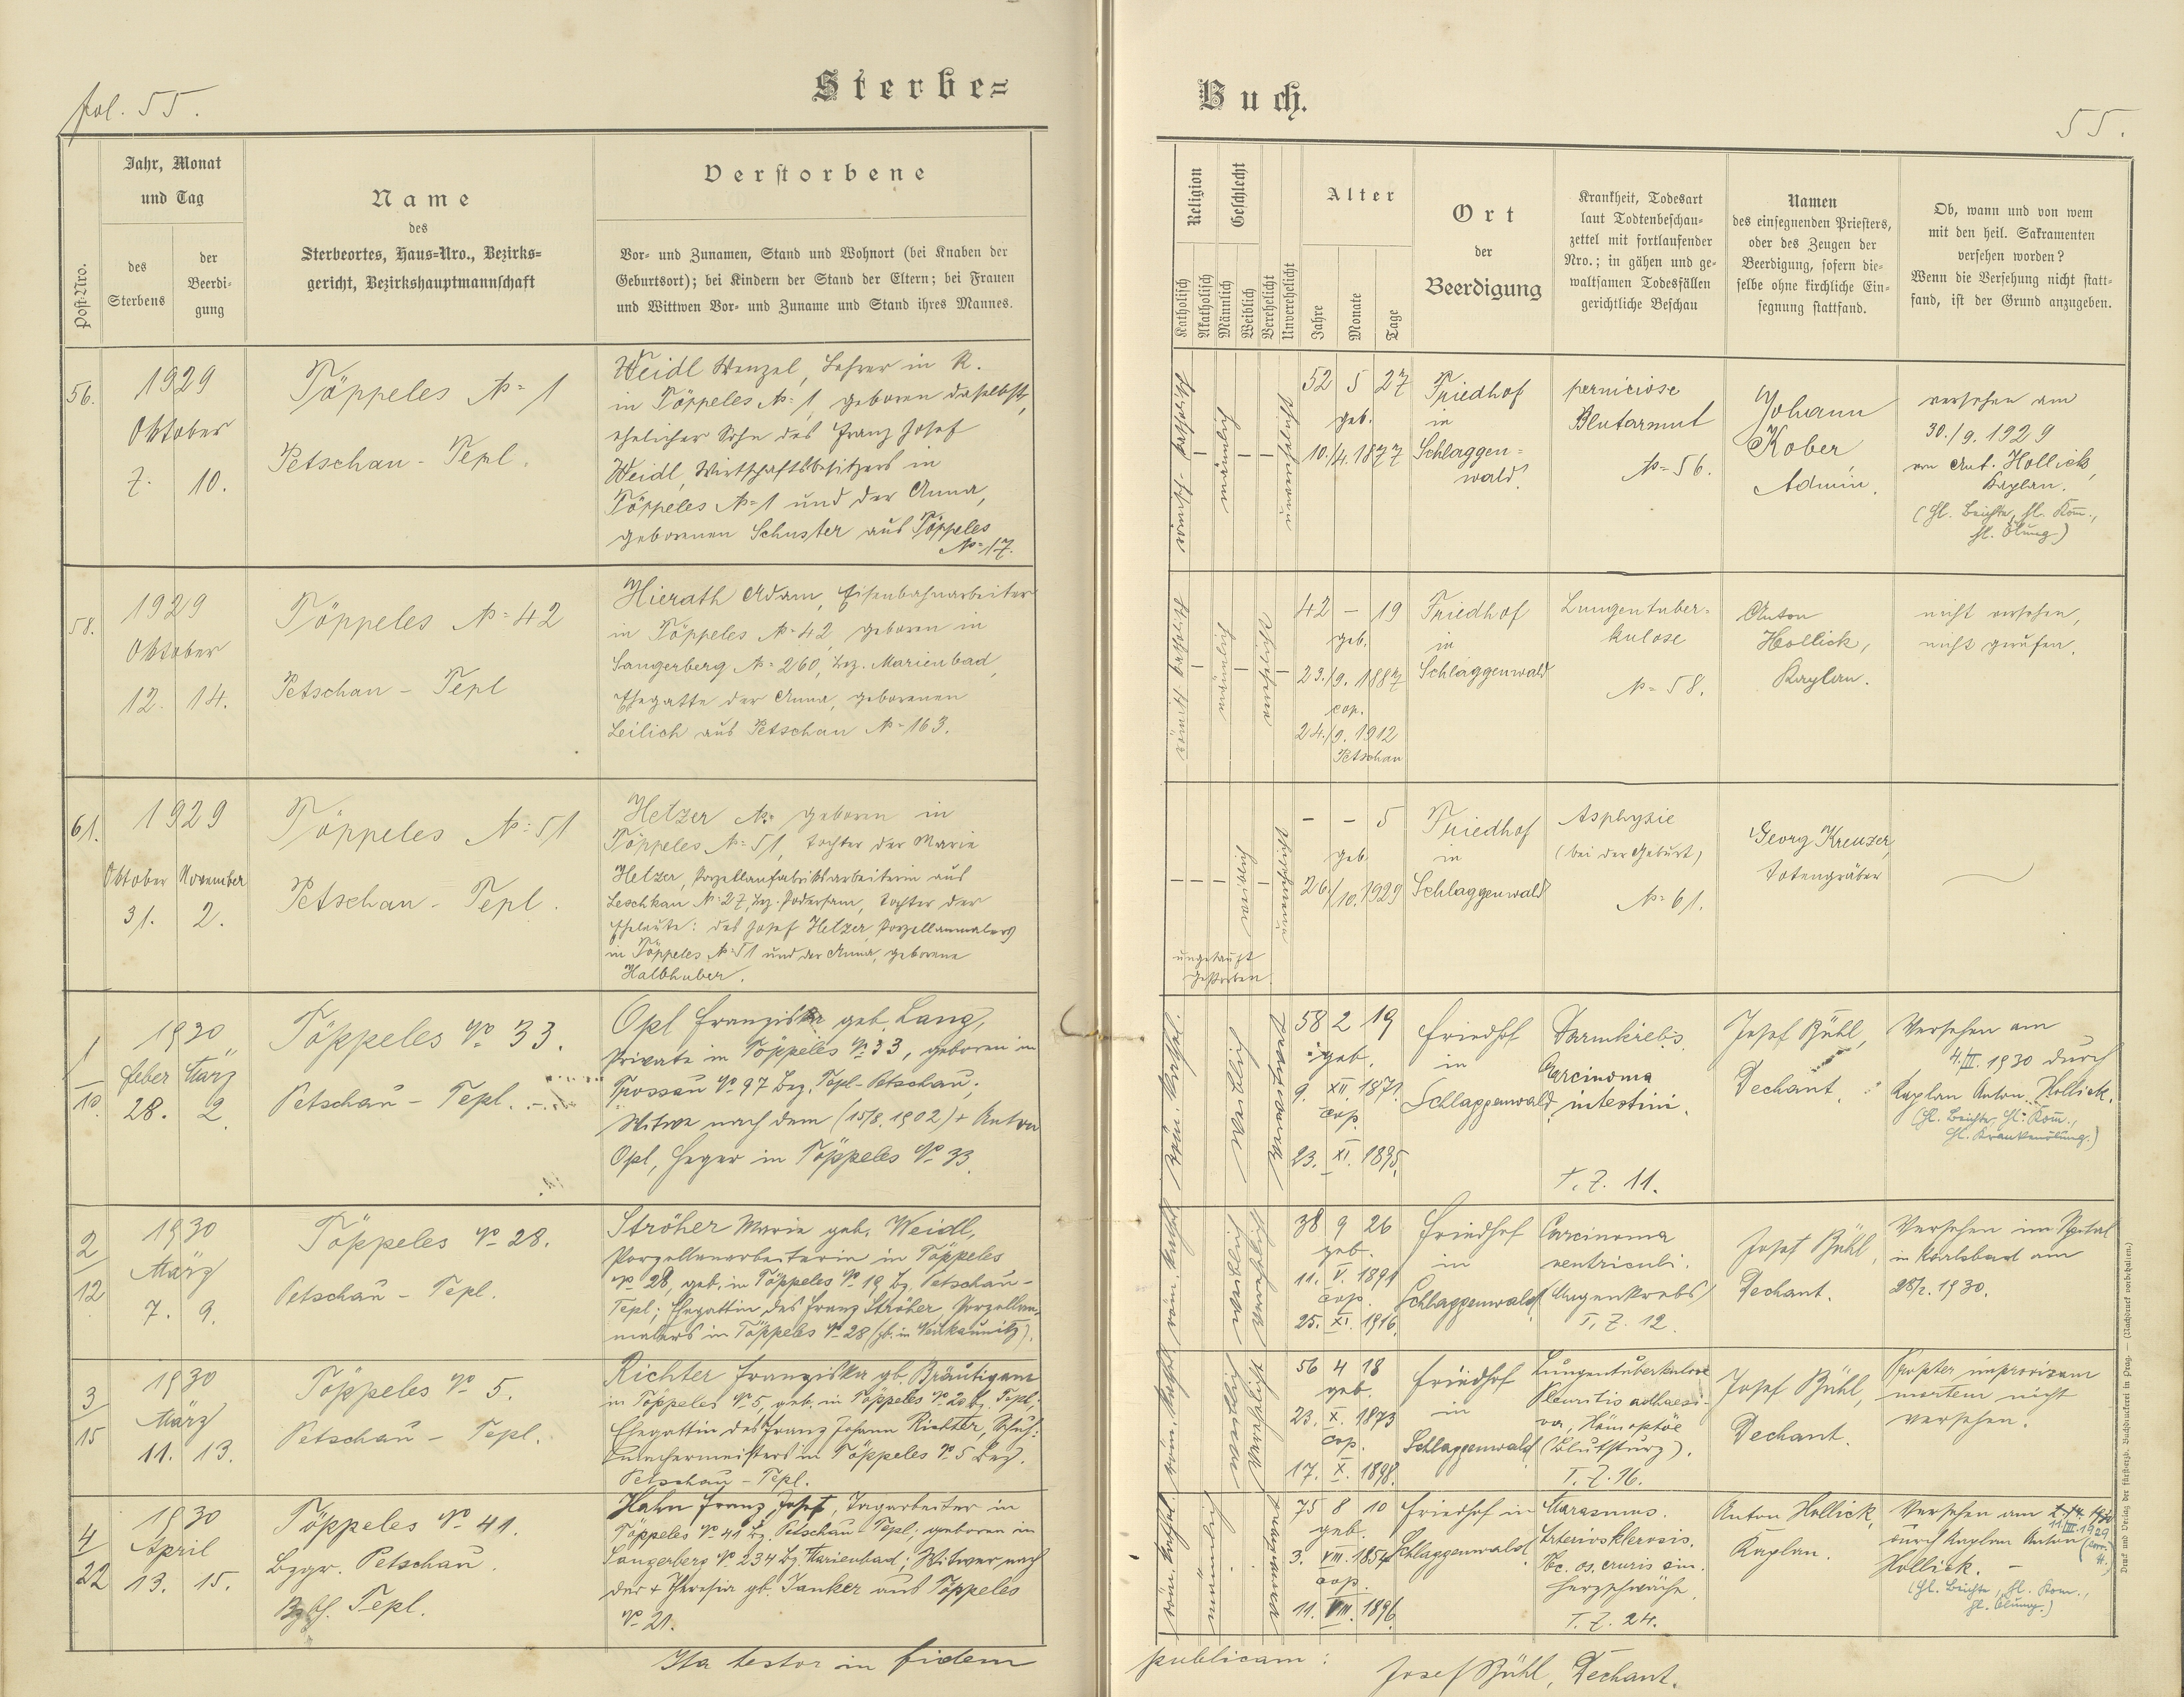 fol. 55.
Sterbe=
Post-Nro.
Jahr, Monat
und Tag
des
Sterbens
der
Beerdi-
gung
Name
des
Sterbeortes, Haus-Nro., Bezirks-
gericht, Bezirkshauptmannschaft
Verstorbene
Vor- und Zunamen, Stand und Wohnort (bei Knaben der
Geburtsort); bei Kindern der Stand der Eltern; bei Frauen
und Wittwen Vor- und Zuname und Stand ihres Mannes.
56.
1929
Oktober
7. 10.
Töppeles № 1
Petschau - Tepl.
Weidl Wenzel, Lehrer in R.
in Töppeles № 1, geboren daselbst,
ehelicher Sohn des Franz Josef
Weidl, Wirtschaftsbesitzers in
Töppeles № 1 und der Anna,
geborenen Schuster aus Töppeles
№ 17.
58.
1929
Oktober
12. 14.
Töppeles № 42
Petschau - Tepl
Hierath Adam, Eisenbahnarbeiter
in Töppeles № 42, geboren in
Sangerberg № 260, Bez. Marienbad,
Ehegatte der Anna, geborenen
Leilich aus Petschau № 163.
61.
1929
Oktober November
31. 2.
Töppeles № 51
Petschau - Tepl.
Helzer N. geboren in
Töppeles № 51, Tochter der Marie
Helzer, Porzellanfabriksarbeiterin aus
Leschkau № 27, Bez. Podersam, Tochter der
Eheleute: des Josef Helzer, Porzellanmalers
in Töppeles № 51 und der Anna, geborene
Halbhuber.
1/10.
1930
Feber März
28. 2.
Töppeles № 33.
Petschau - Tepl.
Opl Franziska geb. Lang,
Private in Töppeles № 33, geboren in
Prossau № 97 Bez. Tepl-Petschau;
Witwe nach dem (15/8. 1902) + Anton
Opl, Heger in Töppeles № 33.
2/12
1930
März
7. 9.
Töppeles № 28.
Petschau - Tepl.
Ströher Marie geb. Weidl,
Porzellanarbeiterin in Töppeles
№ 28, geb. in Töppeles № 19 Bz. Petschau-
Tepl; Ehegattin des Franz Ströher, Porzellan-
malers in Töppeles № 28
3/15
1930
März
11. 13.
Töppeles № 5.
Petschau - Tepl.
Richter Franziska gb. Bräutigam
in Töppeles № 5, geb. in Töppeles № 20 Bz. Tepl;
Ehegattin des Franz Johann Richter, Schuh-
machermeisters in Töppeles № 5 Bez.
Petschau - Tepl.
4/22
1930
April
13. 15.
Töppeles № 41.
Bzgr. Petschau.
Tepl.
Hahn Franz Josef, Tagarbeiter in
Töppeles № 41 Bz. Petschau-Tepl; geboren in
Sangerberg № 234 Bz. Marienbad; Witwer nach
der + Theresia gb. Janker aus Töppeles
№ 21.
Ita testor in fidem
Buch.
55.
Religion
Katholisch
Akatholisch
Geschlecht
Männlich
Weiblich
Verehelicht
Unverehelicht
Alter
Jahre
Monate
Tage
Ort
der
Beerdigung
Krankheit, Todesart
laut Todtenbeschau-
zettel mit fortlaufender
Nro.; in gähen und ge-
waltsamen Todesfällen
gerichtliche Beschau
Namen
des einsegnenden Priesters,
oder des Zeugen der
Beerdigung, sofern die-
selbe ohne kirchliche Ein-
segnung stattfand.
Ob, wann und von wem
mit den heil. Sakramenten
versehen worden?
Wenn die Versehung nicht statt-
fand, ist der Grund anzugeben.
römisch-katholisch
männlich
unverehelicht
52 5 27
geb.
10./4. 1877
Friedhof
in
Schlaggen-
wald.
perniciose
Blutarmut
№ 56.
Johann
Kober
Admin.
versehen am
30./9. 1929
von Ant. Hollick,
Kaplan.
(hl. Beichte, hl. Kom.,
hl. Ölung)
römisch-katholisch
männlich
verehelicht
42 — 19
geb.
23./9. 1887
cop.
24./9. 1912
Petschau
Friedhof
in
Schlaggenwald
Lungentuber-
kulose
№ 58.
Anton
Hollick,
Kaplan.
nicht versehen,
nicht gerufen.
weiblich
unverehelicht
— — 5
geb.
26./10. 1929
ungetauft
gestorben.
Friedhof
in
Schlaggenwald
Asphyxie
(bei der Geburt)
№ 61.
Georg Kreuzer,
Totengräber
röm. kathol.
weiblich
verwitwet
58 2 19
geb.
9. XII. 1871
cop.
23. XI. 1895.
Friedhof
in
Schlaggenwald
Darmkrebs
Carcinoma
intestini.
T. Z. 11.
Josef Bühl,
Dechant.
Versehen am
4./II. 1930 durch
Kaplan Anton Hollick.
(hl. Beichte, hl. Kom.,
hl. Krankenölung.)
röm. kathol.
weiblich
verehelicht
38 9 26
geb.
11. V. 1891
cop.
25. XI. 1916.
Friedhof
in
Schlaggenwald
Carcinoma
ventriculi.
(Magenkrebs)
T. Z. 12.
Josef Bühl,
Dechant.
Versehen im Spital
in Karlsbad am
28/2. 1930.
röm. kathol.
weiblich
verehelicht
56 4 18
geb.
23. X. 1873
cop.
17. X. 1898.
Friedhof
in
Schlaggenwald
Lungentuberkulose
Pleuritis adhaesi-
va, Hämoptöe
(Blutsturz).
T. Z. 16.
Josef Bühl,
Dechant.
Propter improvisam
mortem nicht
versehen.
röm. kathol.
männlich
verwitwet
75 8 10
geb.
3. VIII. 1854
cop.
11. VIII. 1896.
Friedhof in
Schlaggenwald
Marasmus.
Arteriosklerosis.
Herzschwäche.
T. Z. 24.
Anton Hollick,
Kaplan.
Versehen am
11./III. 1929
durch Kaplan Anton
Hollick.
(hl. Beichte, hl. Kom.,
hl. Ölung.)
Druck und Verlag der fürsterzb. Buchdruckerei in Prag. — (Nachdruck vorbehalten.)
publicam:
Josef Bühl, Dechant.